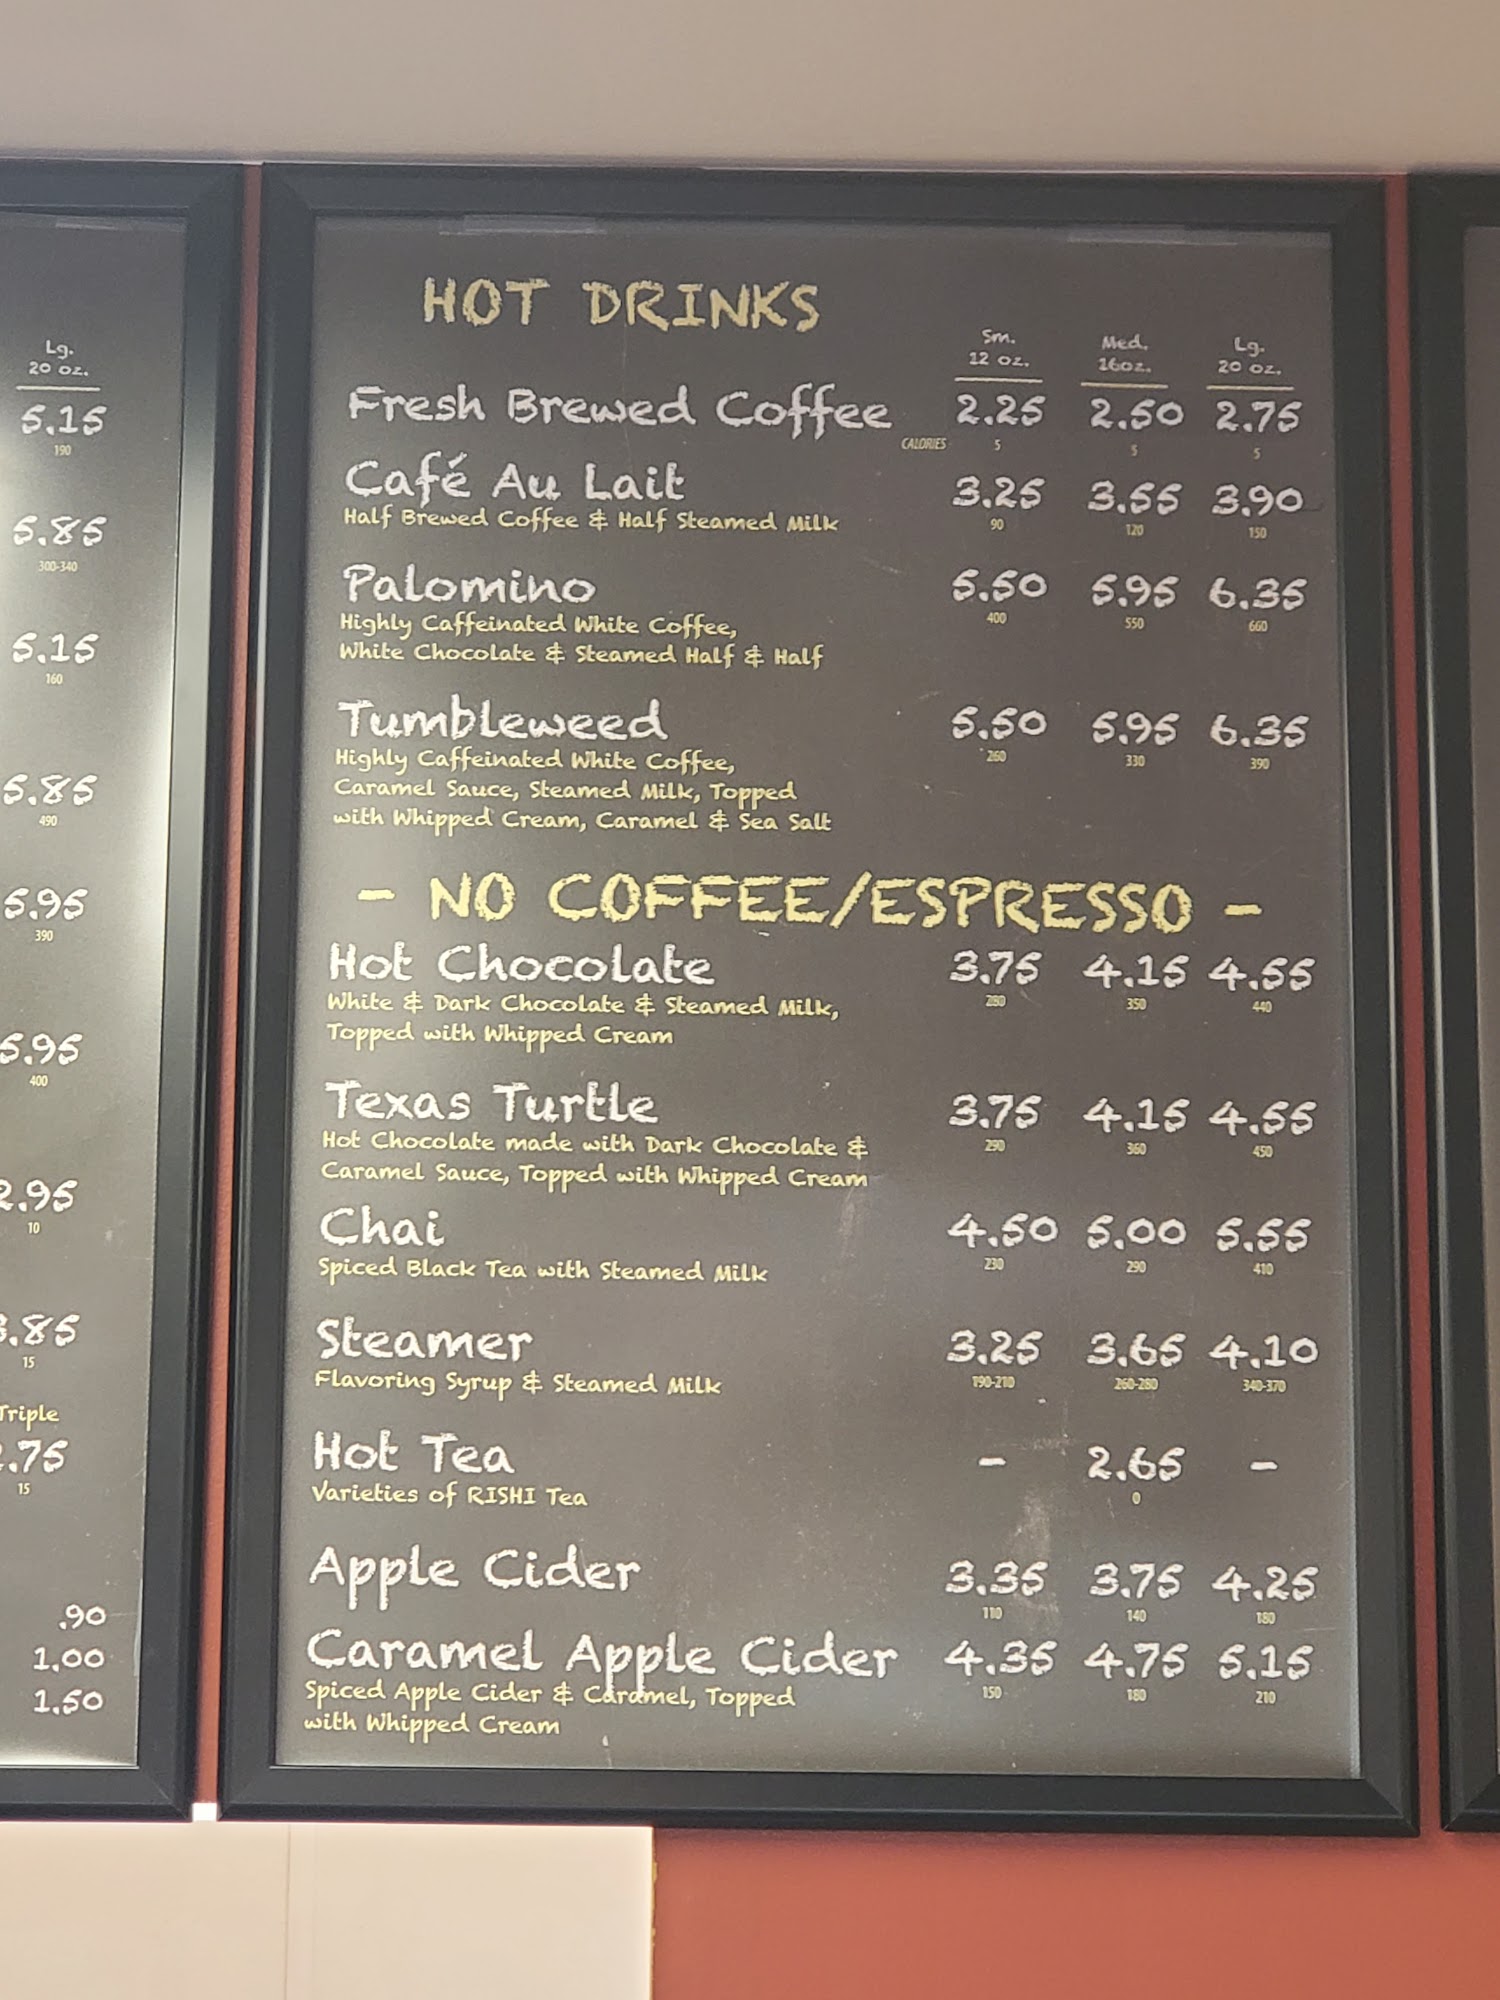 Lg.
20 oz.
5.15
190
5.85
300-340
5.15
160
5.85
490
5.95
390
5.95
400
2.95
10
.85
15
Triple
.75
15
.90
1.00
1.50
HOT DRINKS
Sm. Med. Lg.
12 oz. 16oz. 20 oz.
Fresh Brewed Coffee 2.25 2.50 2.75
CALORIES 5 5 5
Café Au Lait 3.25 3.55 3.90
Half Brewed Coffee & Half Steamed Milk 90 120 150
Palomino 5.50 5.95 6.35
Highly Caffeinated White Coffee, 400 550 660
White Chocolate & Steamed Half & Half
Tumbleweed 5.50 5.95 6.35
Highly Caffeinated White Coffee, 260 330 390
Caramel Sauce, Steamed Milk, Topped
with Whipped Cream, Caramel & Sea Salt
- NO COFFEE/ESPRESSO -
Hot Chocolate 3.75 4.15 4.55
White & Dark Chocolate & Steamed Milk, 280 350 440
Topped with Whipped Cream
Texas Turtle 3.75 4.15 4.55
Hot Chocolate made with Dark Chocolate & 290 360 450
Caramel Sauce, Topped with Whipped Cream
Chai 4.50 5.00 5.55
Spiced Black Tea with Steamed Milk 230 290 410
Steamer 3.25 3.65 4.10
Flavoring Syrup & Steamed Milk 190-210 260-280 340-370
Hot Tea - 2.65 -
Varieties of RISHI Tea 0
Apple Cider 3.35 3.75 4.25
110 140 180
Caramel Apple Cider 4.35 4.75 5.15
Spiced Apple Cider & Caramel, Topped 150 180 210
with Whipped Cream